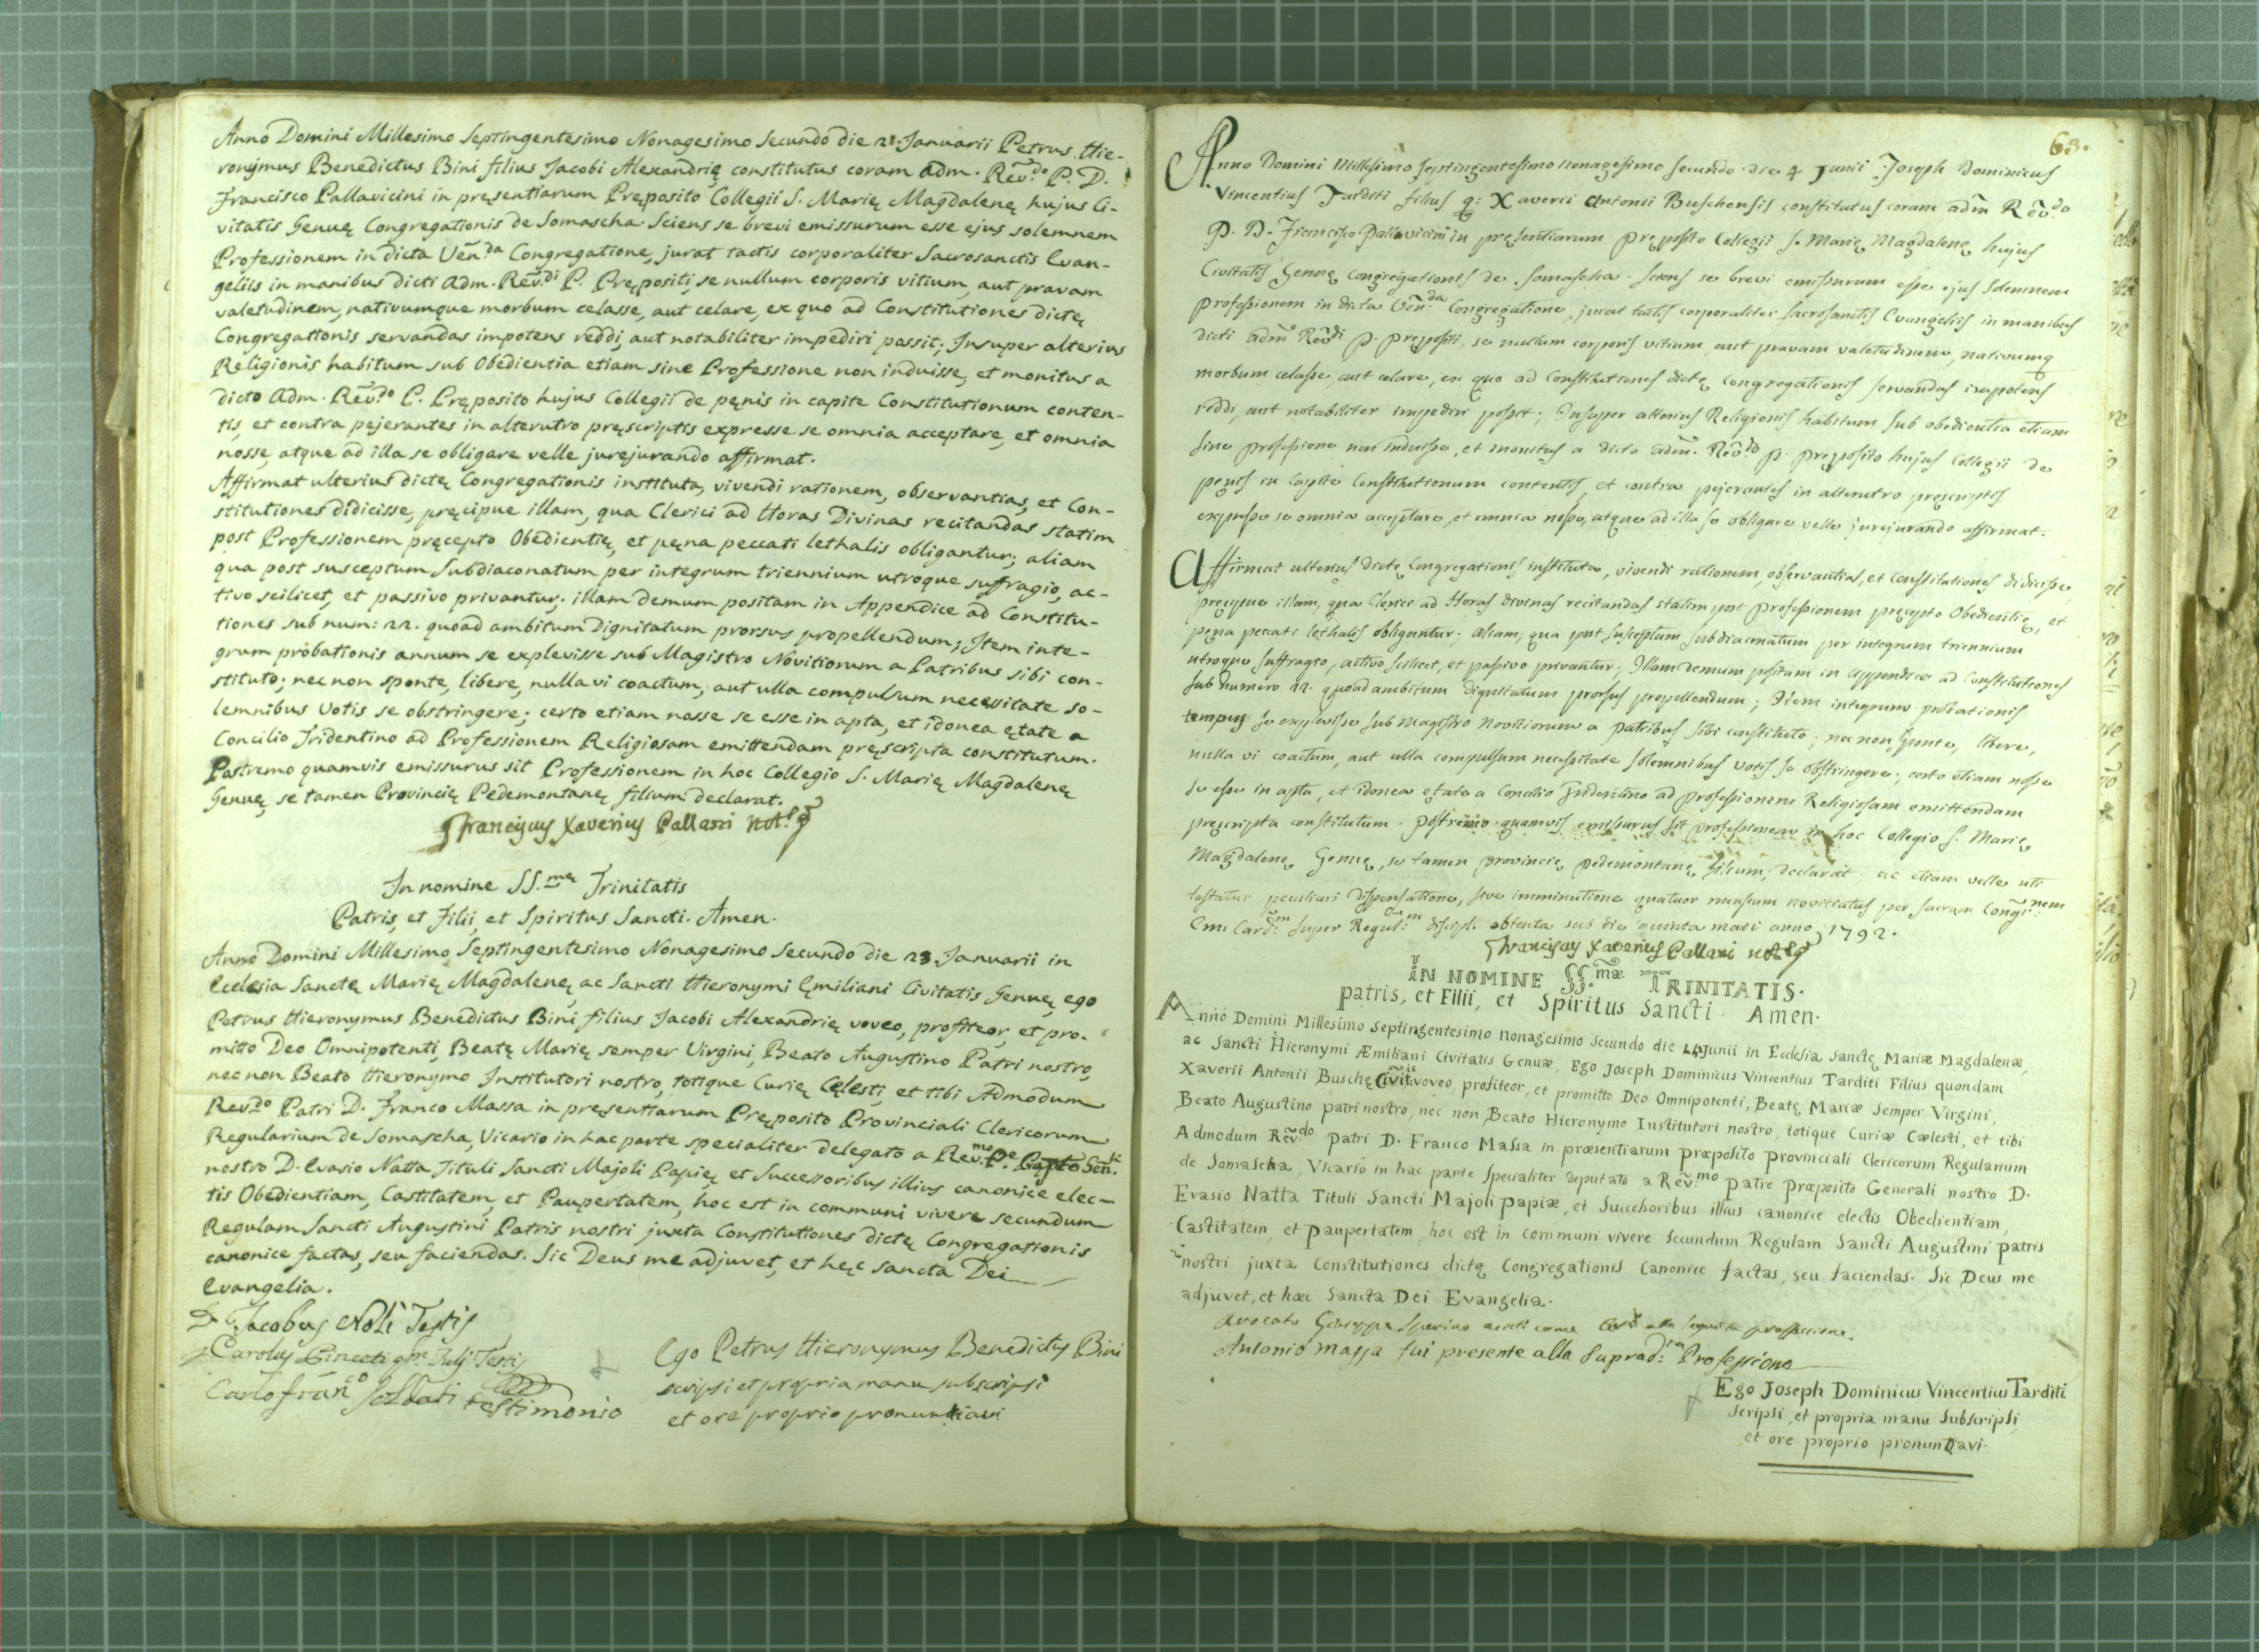 Anno Domini Millesimo Septingentesimo Nonagesimo Secundo die 21. Januarii Petrus Hie-
ronymus Benedictus Bini filius Jacobi Alexandrię constitutus coram Adm. Rev̄.do P. D.
Francisco Pallavicini in pręsentiarum Pręposito Collegii S. Marię Magdalenę hujus Ci-
vitatis Genuę Congregationis de Somascha. Sciens se brevi emissurum esse ejus solemnem
Professionem in dicta Ven̄.da Congregatione, jurat tactis corporaliter Sacrosanctis Evan-
geliis in manibus dicti Adm. Rev̄.di P. Prępositi, se nullum corporis vitium, aut pravam
valetudinem, nativumque morbum celasse, aut celare, ex quo ad Constitutiones dictę
Congregationis servandas impotens reddi, aut notabiliter impediri possit; Insuper alterius
Religionis habitum sub Obedientia etiam sine Professione non induisse, et monitus a
dicto Adm. Rev̄.do P. Pręposito hujus Collegii de pęnis in capite Constitutionum conten-
tis, et contra pejerantes in alterutro pręscriptis expresse se omnia acceptare, et omnia
nosse, atque ad illa se obligare velle jurejurando affirmat.
Affirmat ulterius dictę Congregationis instituta, vivendi rationem, observantias, et Con-
stitutiones didicisse, pręcipue illam, qua Clerici ad Horas Divinas recitandas statim
post Professionem pręcepto Obedientię, et pęna peccati lethalis obligantur; aliam
qua post susceptum Subdiaconatum per integrum triennium utroque suffragio, ac-
tivo scilicet, et passivo privantur; illam demum positam in Appendice ad Constitu-
tiones sub num: 22. quoad ambitum Dignitatum prorsus propellendum; Item inte-
grum probationis annum se explevisse sub Magistro Novitiorum a Patribus sibi con-
stituto; nec non sponte, libere, nulla vi coactum, aut ulla compulsum necessitate so-
lemnibus Votis se obstringere; certo etiam nosse se esse in apta, et idonea ętate a
Concilio Tridentino ad Professionem Religiosam emittendam pręscripta constitutum.
Postremo quamvis emissurus sit Professionem in hoc Collegio S. Marię Magdalenę
Genuę, se tamen Provincię Pedemontanę filium declarat.
Franciscus Xaverius Pallani
In nomine SS.mę Trinitatis
Patris, et Filii, et Spiritus Sancti. Amen.
Anno Domini Millesimo Septingentesimo Nonagesimo Secundo die 23 Januarii in
Ecclesia Sanctę Marię Magdalenę, ac Sancti Hieronymi Ęmiliani Civitatis Genuę, ego
Petrus Hieronymus Benedictus Bini filius Jacobi Alexandrię voveo, profiteor, et pro-
mitto Deo Omnipotenti, Beatę Marię semper Virgini, Beato Augustino Patri nostro,
nec non Beato Hieronymo Institutori nostro, totique Curię Cęlesti, et tibi Admodum
Rev.do Patri D. Franco Massa in pręsentiarum Pręposito Provinciali Clericorum
Regularium de Somascha, Vicario in hac parte specialiter delegato a Rev.mo
nostro D. Evasio Natta Tituli Sancti Majoli Papię, et Successoribus illius canonice elec-
tis Obedientiam, Castitatem, et Paupertatem, hoc est in communi vivere secundum
Regulam Sancti Augustini Patris nostri juxta Constitutiones dictę Congregationis
canonice factas, seu faciendas. Sic Deus me adjuvet, et hęc Sancta Dei
Evangelia.
Jacobus Noli Testis
Carolus
Carlo Testimonio
Ego Petrus Hieronymus Benedictus Bini
scripsi et propria manu subscripsi
et ore proprio pronuntiavi
63.
Anno Domini Millesimo Septingentesimo nonagesimo secundo die 4 Junii Joseph Dominicus
Vincentius Tarditi filius q: Xaverii Antonii Buschensis constitutus coram adm̄ Rev̄.do
P. D. Francisco Pallavicini in pręsentiarum Pręposito Collegii S. Marię Magdalenę hujus
Civitatis Genuę congregationis de Somascha. Sciens se brevi emissurum esse ejus Solemnem
professionem in dicta Ven̄.da Congregatione, jurat tactis corporaliter Sacrosanctis Evangeliis in manibus
dicti adm̄ Rev̄di P. Prępositi, se nullum corporis vitium, aut pravam valetudinem, nativumq
morbum celasse, aut celare, ex quo ad Constitutiones dictę Congregationis servandas impotens
reddi, aut notabiliter impediri possit; Insuper alterius Religionis habitum sub obedientia etiam
sine professione non induisse, et monitus a dicto adm̄. Rev̄do P. Pręposito hujus Collegii de
pęnis in Capite Constitutionum contentis, et contra pejerantes in alterutro pręscriptis
expresse se omnia acceptare, et omnia nosse, atque ad illa se obligare velle jurejurando affirmat.
Affirmat ulterius dictę Congregationis instituta, vivendi rationem, observantias, et Constitutiones didicisse,
pręcipue illam, qua Clerici ad Horas divinas recitandas statim post professionem pręcepto Obedientię, et
pęna peccati lethalis obligantur; aliam, qua post susceptum subdiaconatum per integrum triennium
utroque suffragio, activo scilicet, et passivo privantur; Illam demum positam in appendice ad Constitutiones
sub numero 22. quoad ambitum dignitatum prorsus propellendum; Item integrum probationis
tempus se explevisse sub magistro novitiorum a patribus sibi constituto; nec non sponte, libere,
nulla vi coactum, aut ulla compulsum necessitate solemnibus votis se obstringere; certo etiam nosse
se esse in apta, et idonea ętate a Concilio Tridentino ad professionem Religiosam emittendam
pręscripta constitutum. Postremo quamvis emissurus sit professionem in hoc Collegio S. Marię
Magdalenę Genuę, se tamen provincię pedemontanę filium, declarat, ac etiam velle uti
testatur peculiari dispensatione, sive imminutione quatuor mensium novitiatus per sacram Cong:nem
Em: Card:m super Regul:m discipl. obtenta sub die quinta maii anno 1792.
Franciscus Xaverius Pallani
IN NOMINE SS.mæ TRINITATIS.
patris, et Filii, et Spiritus Sancti. Amen.
Anno Domini Millesimo Septingentesimo Nonagesimo Secundo die Junii in Ecclesia Sanctę Mariæ Magdalenæ,
ac Sancti Hieronymi Æmiliani Civitatis Genuæ, Ego Joseph Dominicus Vincentius Tarditi Filius quondam
Xaverii Antonii Buschę voveo, profiteor, et promitto Deo Omnipotenti, Beatę Mariæ Semper Virgini,
Beato Augustino patri nostro, nec non Beato Hieronymo Institutori nostro, totique Curiæ Cælesti, et tibi
Admodum Rev̄.do patri D. Franco Massa in præsentiarum præposito provinciali Clericorum Regularium
de Somascha, Vicario in hac parte Specialiter deputato a Rev̄.mo patre Præposito Generali nostro D.
Evasio Natta Tituli Sancti Majoli papiæ, et Successoribus illius canonice electis Obedientiam,
Castitatem, et paupertatem, hoc est in communi vivere Secundum Regulam Sancti Augustini patris
nostri juxta Constitutiones dictę Congregationis Canonice factas, seu faciendas. Sic Deus me
adjuvet, et hæc Sancta Dei Evangelia.
Avocato Giuseppe alla professione.
Antonio massa fui presente alla Suprad:ta Professione
Ego Joseph Dominicus Vincentius Tarditi
scripsi, et propria manu Subscripsi,
et ore proprio pronuntiavi.